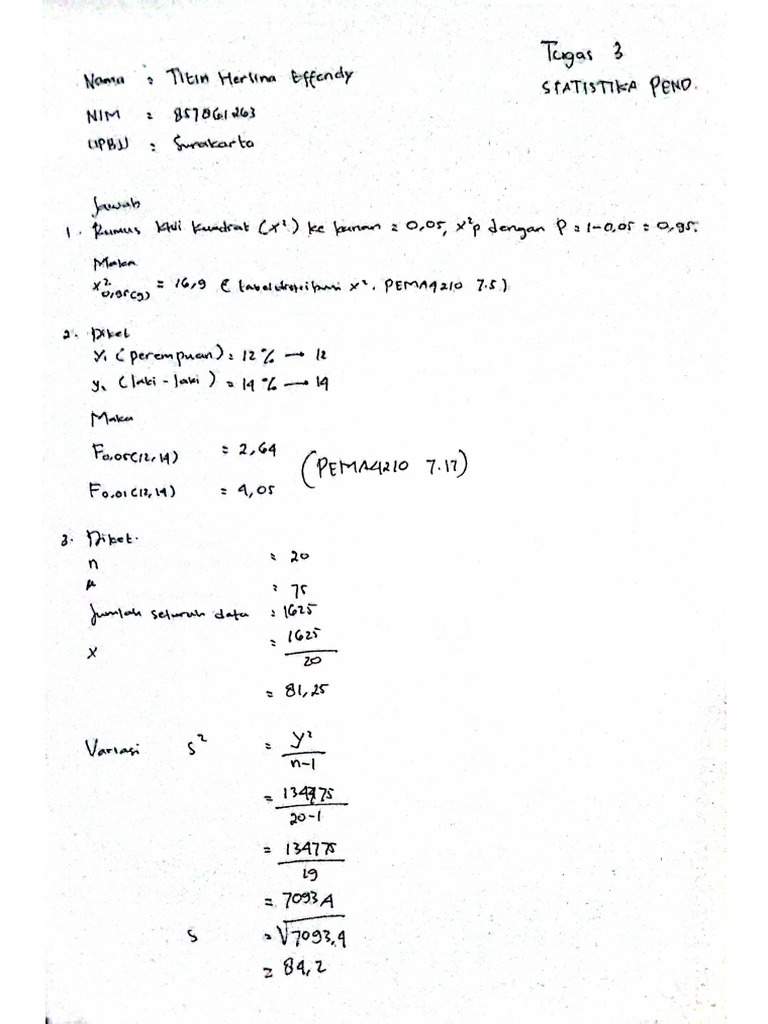 Tugas 3
STATISTIKA PEND.
Nama : Titin Herlina Effendy
NIM : 857061263
UPBJJ : Surakarta
Jawab
1. Rumus Khi Kuadrat (x²) ke kanan = 0,05, x²p dengan P = 1-0,05 = 0,95.
Maka
x² 0,95(9) = 16,9 ( tabel distribusi x². PEMA4210 7.5)
2. Diket
y₁ (perempuan) = 12 % → 12
y₂ (laki - laki) = 14 % → 14
Maka
F0,05(12,14) = 2,64
(PEMA4210 7.17)
F0,01(12,14) = 4,05
3. Diket.
n = 20
μ = 75
Jumlah seluruh data = 1625
x = 1625
20
= 81,25
Variasi s² = y²
n-1
= 134775
20-1
= 134775
19
= 7093,4
s = √7093,4
= 84,2